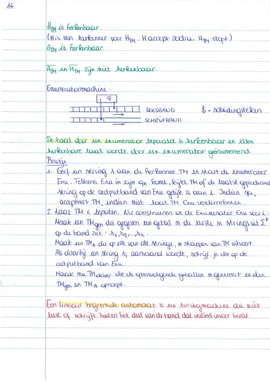 14.
H_TM is herkenbaar
(H is een herkenner voor H_TM. H accept zodra H_TM stopt)
A_TM is herkenbaar.
H_TM en A_TM zijn niet herkenbaar.
Enumeratormachine:
q
LEESBAND $ = scheidingsteken
SCHRIJFBAND
De taal door een enumerator bepaald is herkenbaar en elke
herkenbare taal wordt door een enumerator genummerd.
Bewijs
1. Geef een string s aan de herkenner. TM start de enumerator
Enu. Telkens Enu in zijn komt, kijkt TM of de laatst geproduceerde
string op de outputband van Enu gelijk is aan s. Indien ja,
accepteer TM, indien niet laat TM Enu verderrekenen.
2. Laat TM_L bepalen. We construeren we de Enumerator Enu voor L:
Maak een TM_gen die op de band zet:
Maak een TM die op elk van die strings, n stappen van TM uitvoert.
Als daarbij een string s_i aanvaard wordt, schrijf je die op de
outputband van Enu.
Maak nu TM_driver die de opeenvolgende getallen n genereert en dan
TM_gen en TM_n oproept.
Een linear begrensde automaat is een turingmachine die niet
leest of schrijft buiten het deel van de band dat initieel invoer bevat.